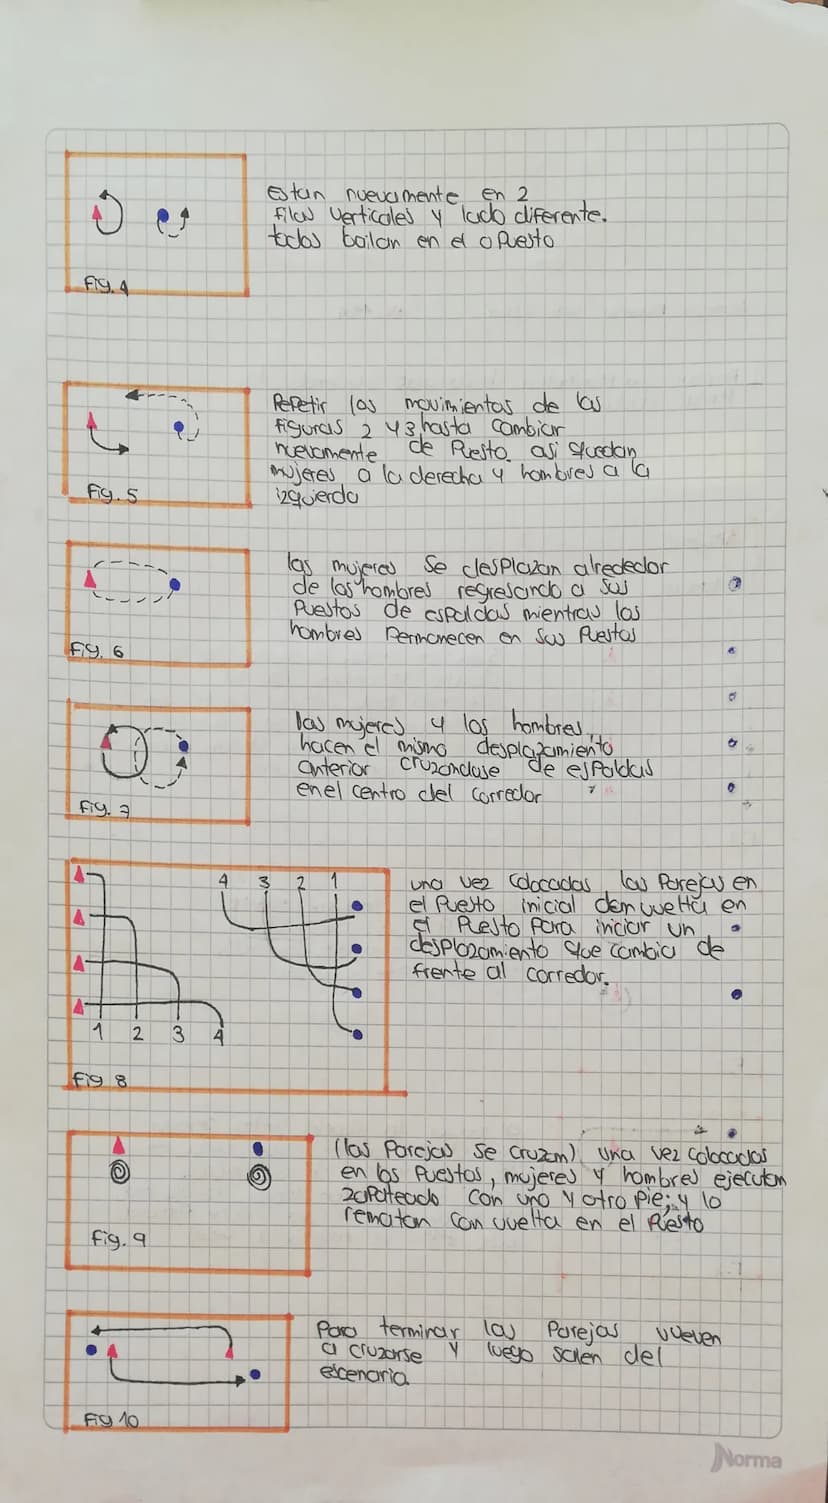 Estan nuevamente en 2
filas verticales y lado diferente.
todos bailan en el opuesto
Fig. 4
Repetir los movimientos de las
figuras 2 y 3 hasta cambiar
nuevamente de Puesto. asi quedan
mujeres a la derecha y hombres a la
izquierda
Fig. 5
las mujeres se desplazan alrededor
de los hombres regresando a sus
Puestos de espaldas mientras los
hombres Permanecen en sus Puestos
Fig. 6
las mujeres y los hombres,
hacen el mismo desplazamiento
anterior cruzandose de espaldas
en el centro del corredor
Fig. 7
4 3 2 1
una vez colocadas las Parejas en
el Puesto inicial dan vuelta en
el Puesto Para iniciar un
desplazamiento que cambia de
frente al corredor.
1 2 3 4
Fig 8
(las Parejas se cruzan) una vez colocadas
en los Puestos, mujeres y hombres ejecutan
zapateado con uno y otro Pie; y lo
rematan con vuelta en el Puesto
Fig. 9
Para terminar las Parejas vuelven
a cruzarse y luego salen del
escenario
Fig 10
Norma